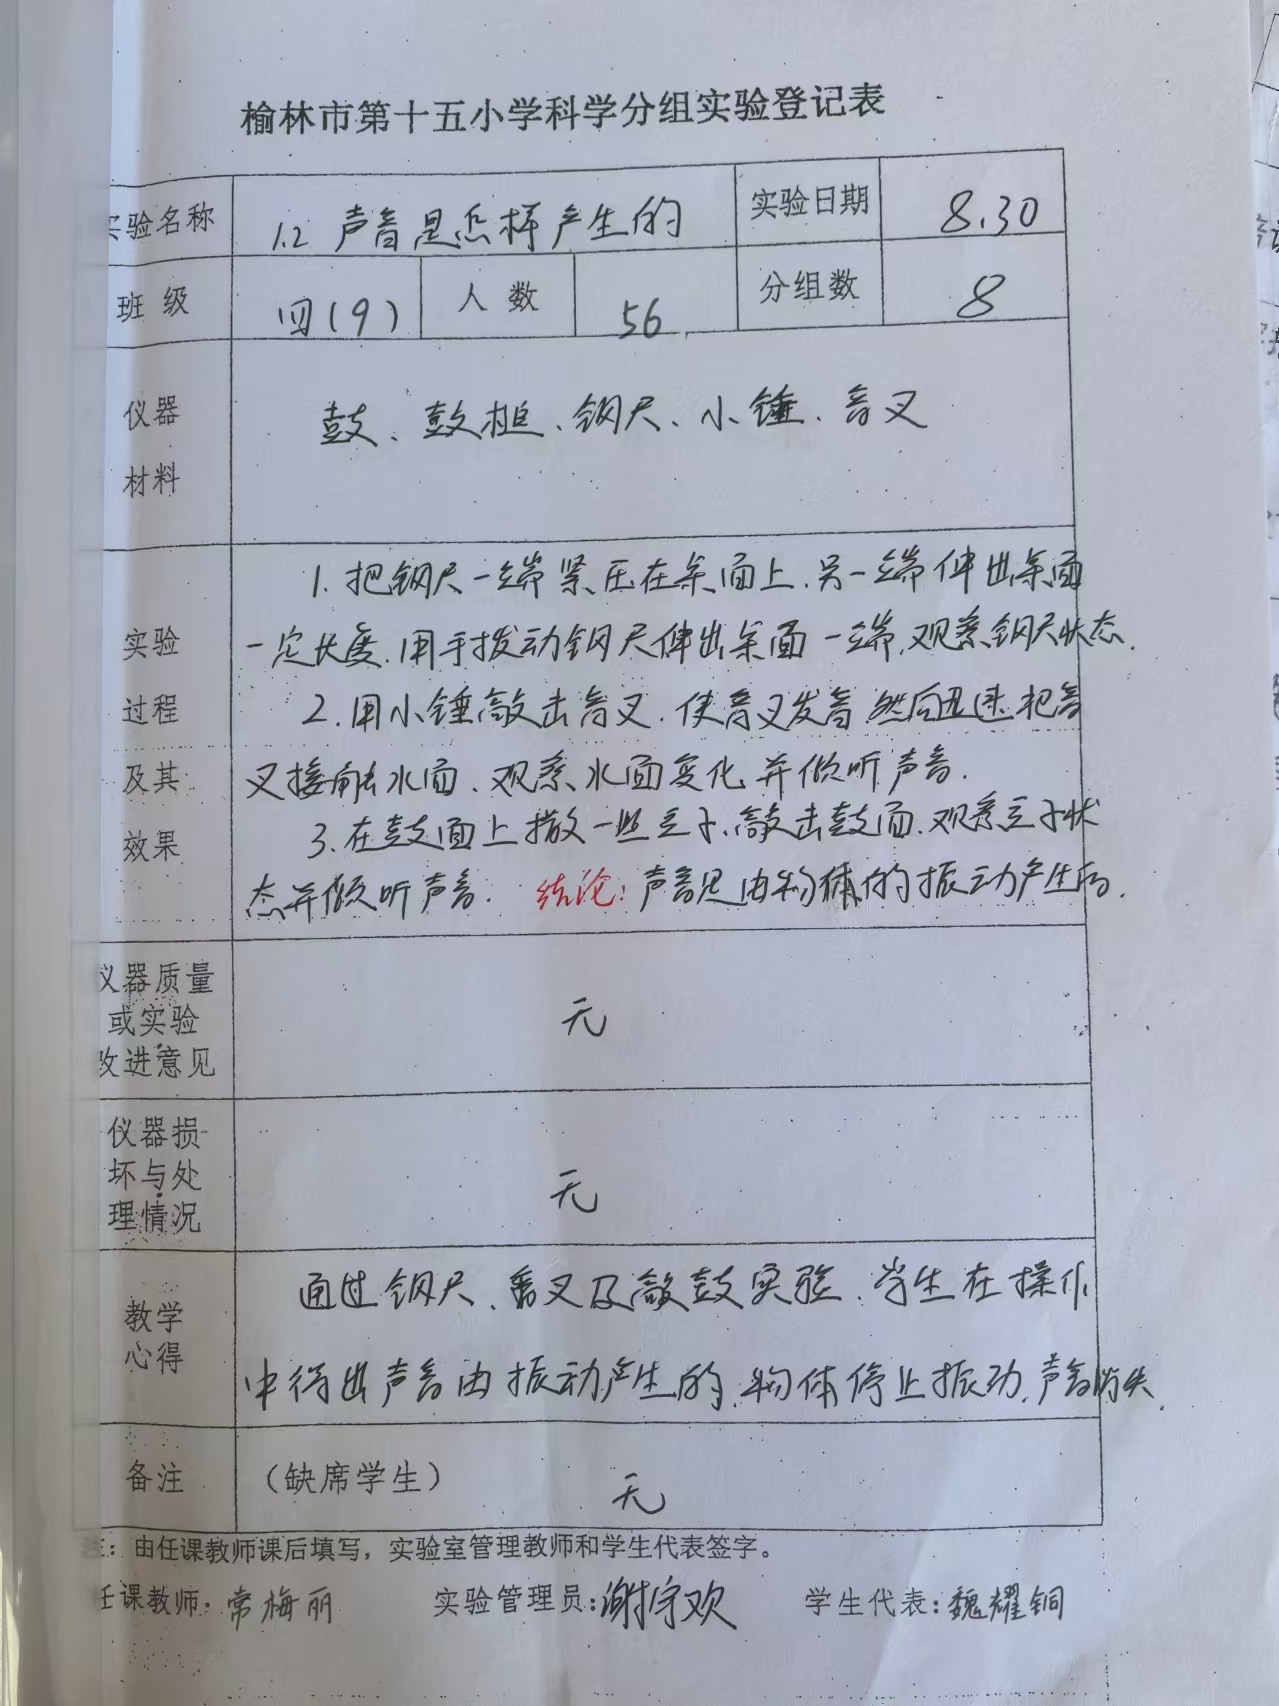 榆林市第十五小学科学分组实验登记表
实验名称 1.2 声音是怎样产生的 实验日期 8.30
班级 四(9) 人数 56 分组数 8
仪器
材料
鼓、鼓槌、钢尺、小锤、音叉
实验
过程
及其
效果
1. 把钢尺一端紧压在桌面上,另一端伸出桌面
一定长度,用手拨动钢尺伸出桌面一端,观察钢尺状态.
2. 用小锤敲击音叉.使音叉发音然后迅速把音
叉接触水面、观察水面变化并倾听声音.
3. 在鼓面上撒一些豆子、敲击鼓面,观察豆子状
态并倾听声音. 结论:声音是由物体的振动产生的.
仪器质量
或实验
改进意见
无
仪器损
坏与处
理情况
无
教学
心得
通过钢尺、音叉及敲鼓实验,学生在操作
中得出声音由振动产生的,物体停止振动,声音消失.
备注 (缺席学生) 无
注:由任课教师课后填写,实验室管理教师和学生代表签字。
任课教师:常梅丽 实验管理员:谢宇欢 学生代表:魏耀铜